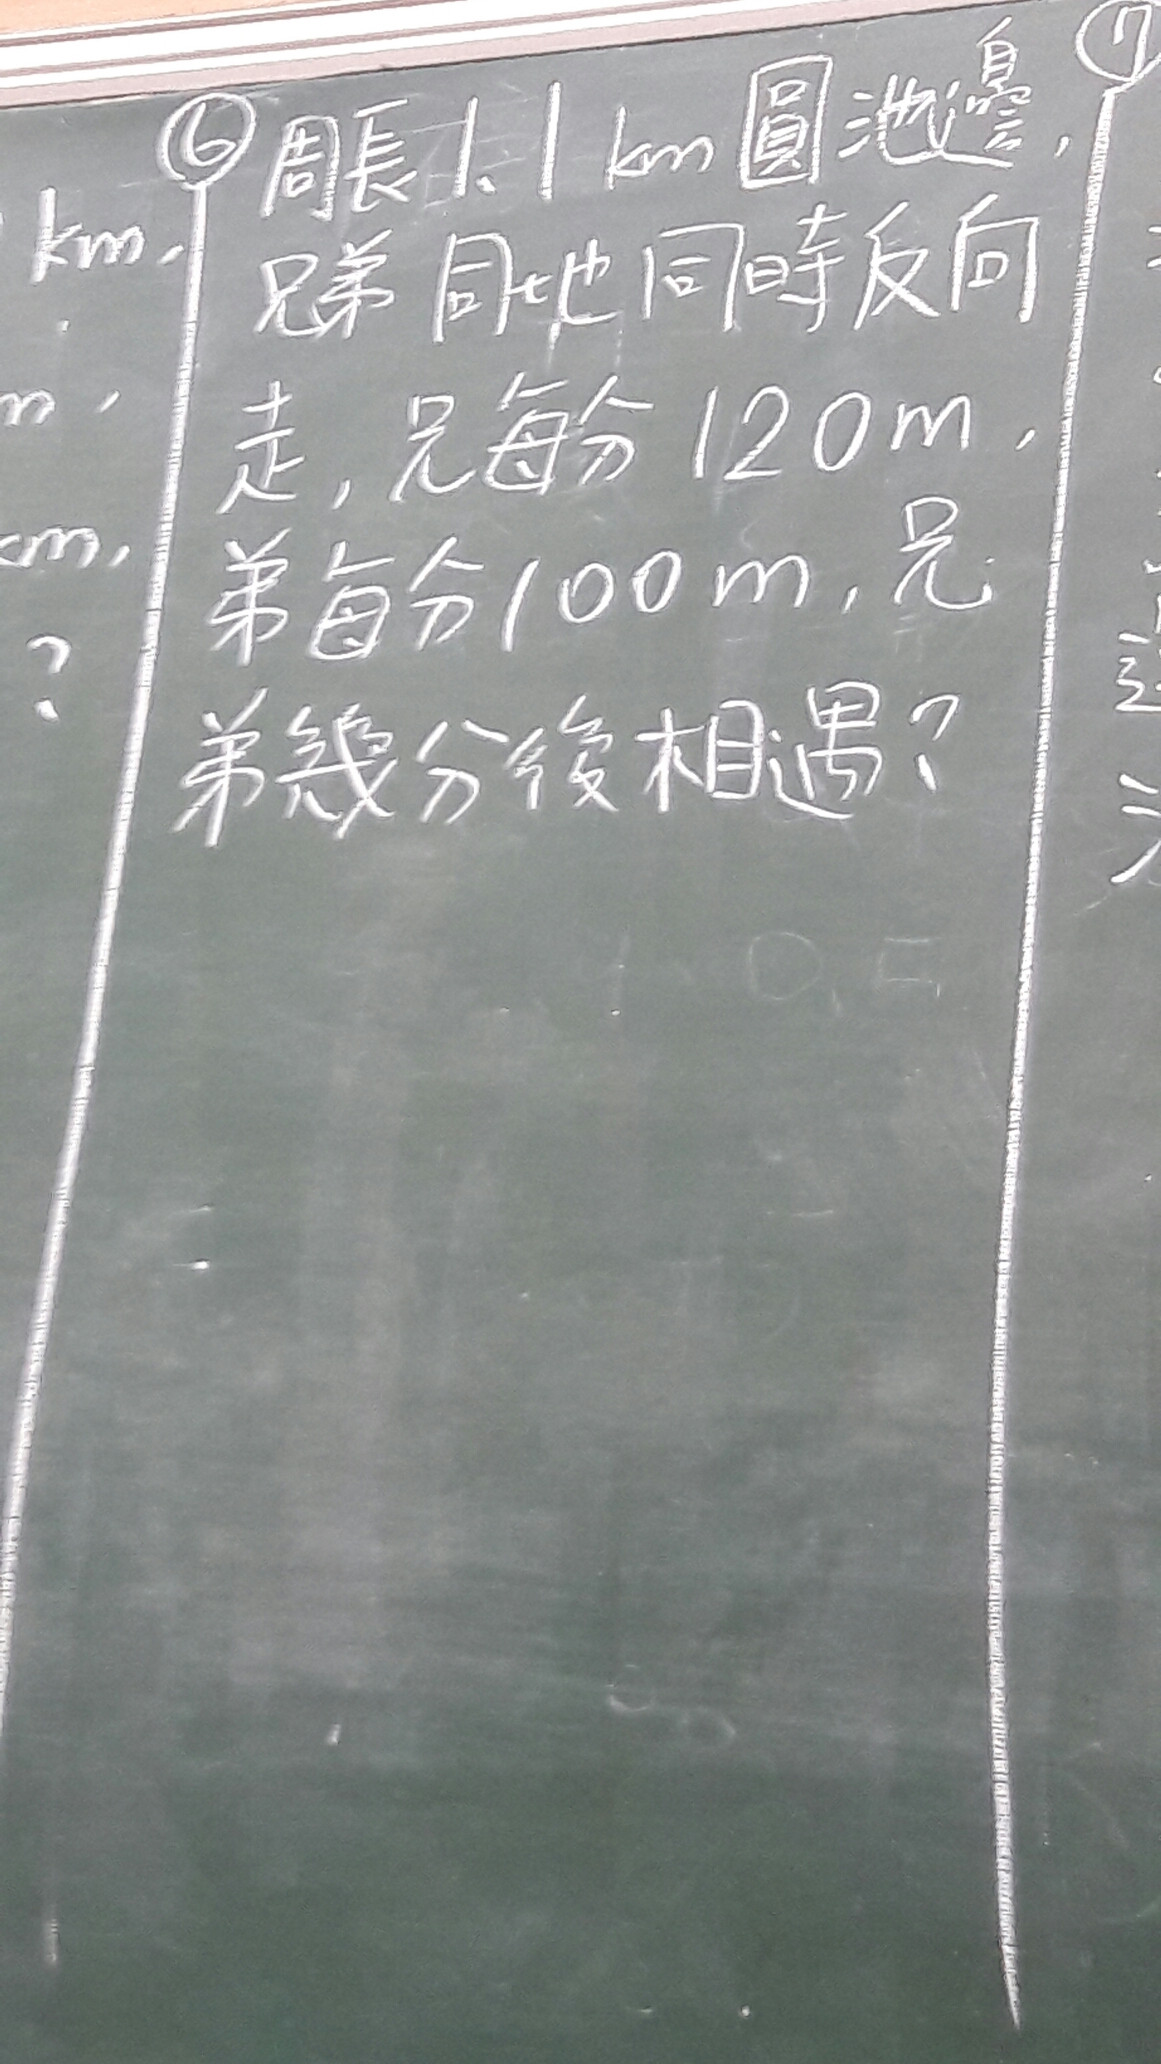 km,
m,
km,
?
⑥ 周長1.1km圓池邊,
兄弟同地同時反向
走,兄每分120m,
弟每分100m,兄
弟幾分後相遇?
⑦